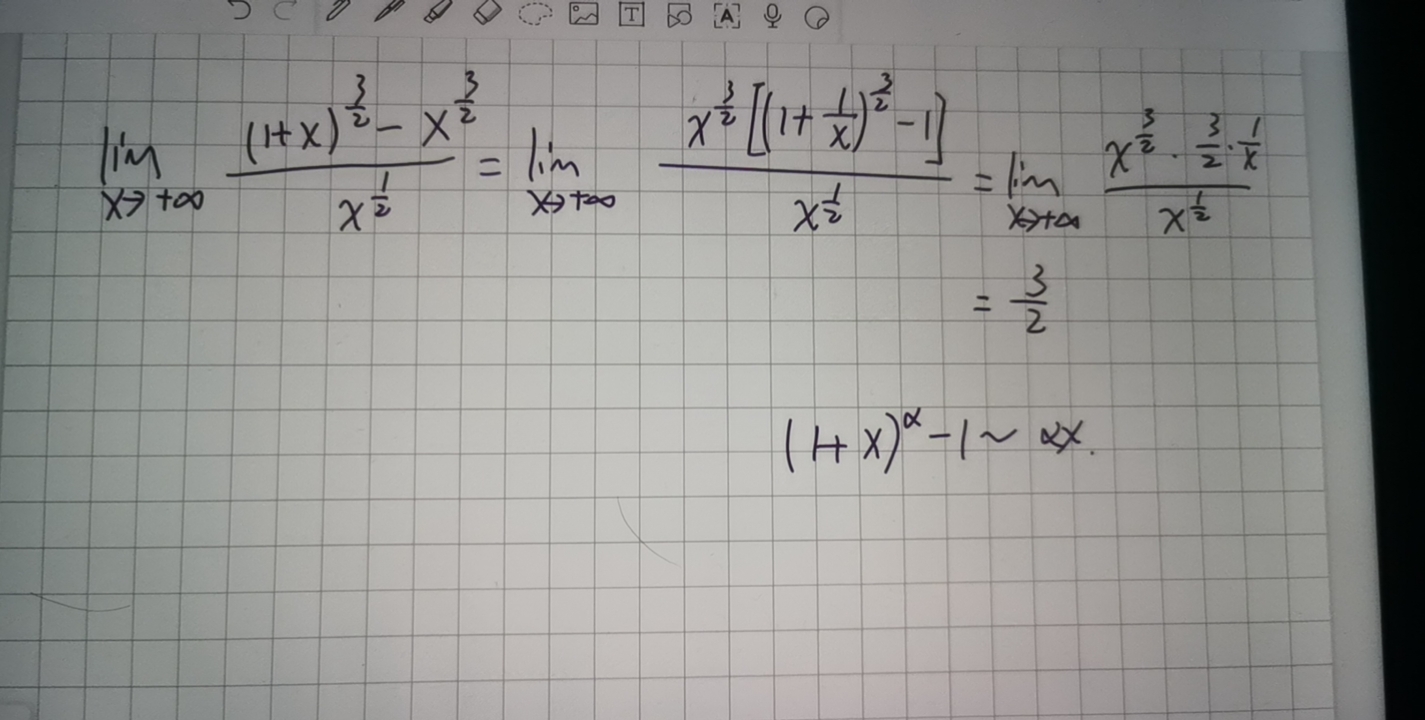 lim x→+∞ ((1+x)^(3/2) − x^(3/2)) / x^(1/2) = lim x→+∞ (x^(3/2) [(1+1/x)^(3/2) − 1]) / x^(1/2) = lim x→+∞ (x^(3/2) · 3/2 · 1/x) / x^(1/2)
= 3/2
(1+x)^α − 1 ~ αx.